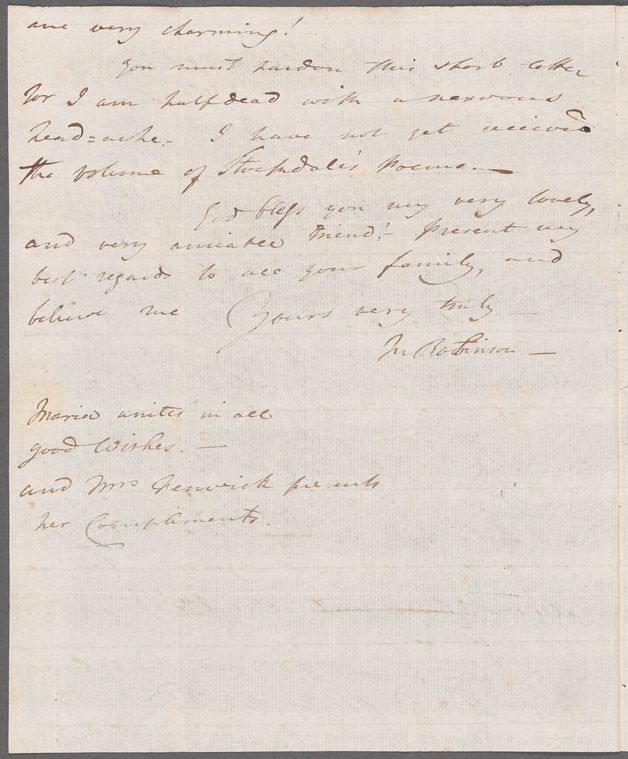 are very charming!
You must pardon this short letter
for I am half dead with a nervous
head=ache. I have not yet received
the volume of Stockdale's Poems.—
God bless you my very lovely,
and very amiable Friend! Present my
best regards to all your family, and
believe me Yours very truly —
M Robinson —
Maria unites in all
good Wishes. —
and Mrs Fenwick presents
her Compliments.